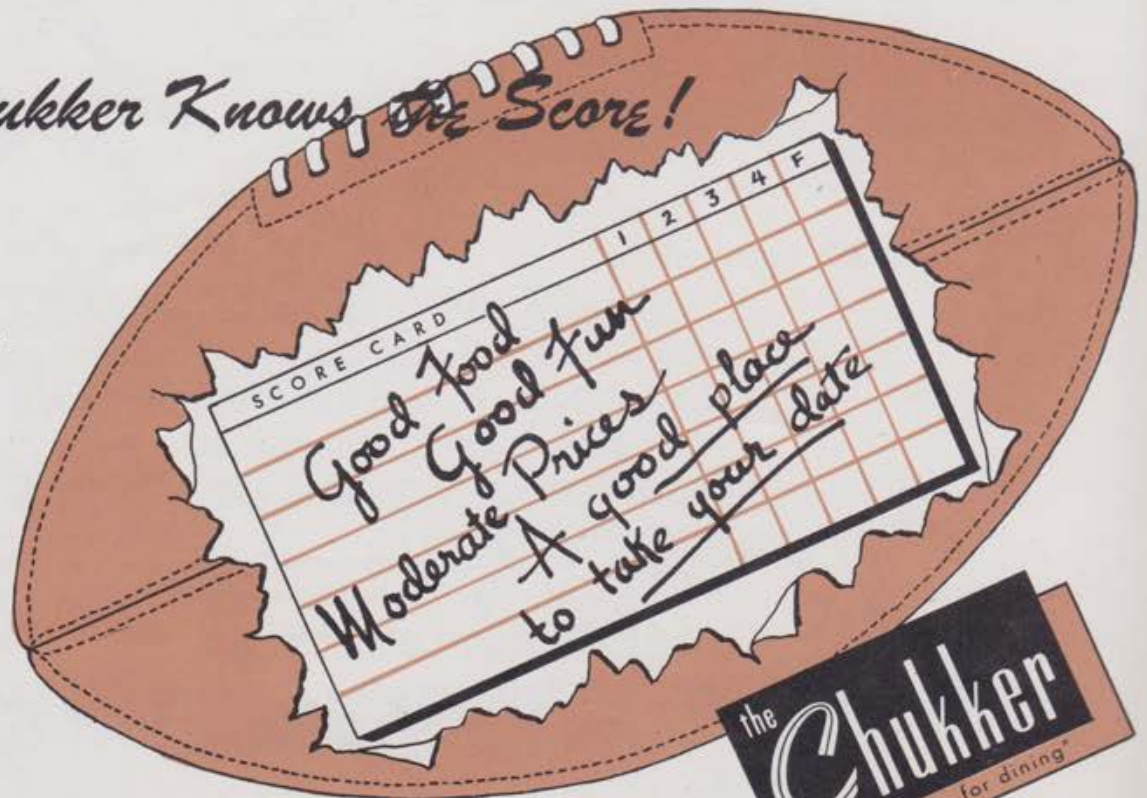 ukker Knows the Score!
SCORE CARD 1 2 3 4 F
Good Food
Good Fun
Moderate Prices
A good place
to take your date
the
Chukker
for dining"